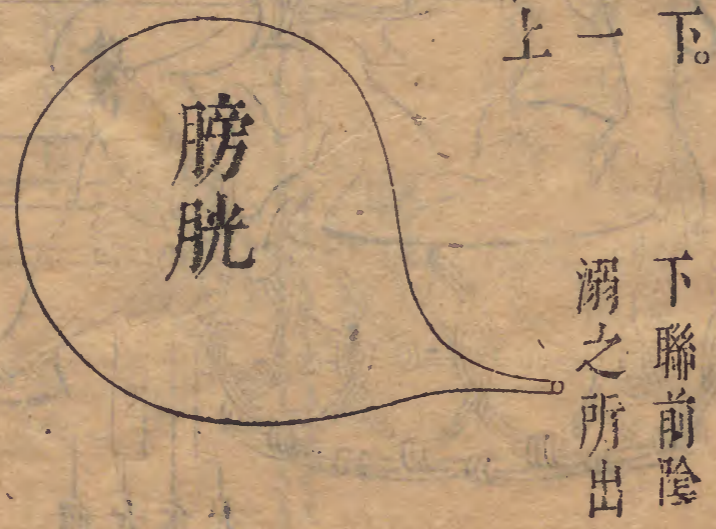 下。
一
上
下聯前陰
溺之所出
膀胱